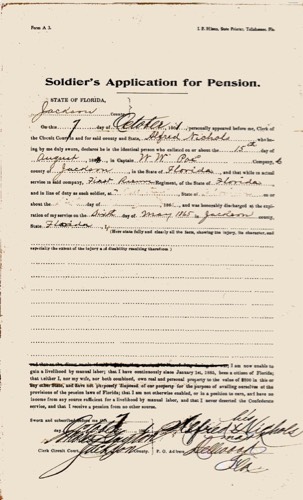 Form A 1. I. B. Hilson, State Printer, Tallahassee, Fla.
Soldier's Application for Pension.
STATE OF FLORIDA,
Jackson County
On this 7 day of October personally appeared before me, Clerk of
the Circuit Court in and for said county and State, Alfred Nichols who be-
ing by me duly sworn, declares he is the identical person who enlisted on or about the 15th day of
August in Captain W. W. Poe Company
county of Jackson, in the State of Florida, and that while in actual
service in said company, First Reserve Regiment, of the State of Florida
and in line of duty as such soldier, at or on or
about the day of 186 , and was honorably discharged at the expi-
ration of my service on the Sixth day of May 1865 in Jackson county,
State Florida
(Here state fully and clearly all the facts, showing the injury, its character, and
especially the extent of the injury and disability resulting therefrom)
I am now unable to
gain a livelihood by manual labor; that I have continuously since January 1st, 1885, been a citizen of Florida;
that neither I, nor my wife, nor both combined, own real and personal property to the value of $600 in this or
any other State, and have not disposed of our property for the purpose of availing ourselves of the
provisions of the pension laws of Florida; that I am not otherwise enabled, or in a position to earn, and have no
income from any source sufficient for a livelihood by manual labor, and that I never deserted the Confederate
service, and that I receive a pension from no other source.
his
Sworn and subscribed before me this 7
day of Alfred X Nichols
mark
Clerk Circuit Court, Jackson County. P. O. Address, Dellwood
Fla